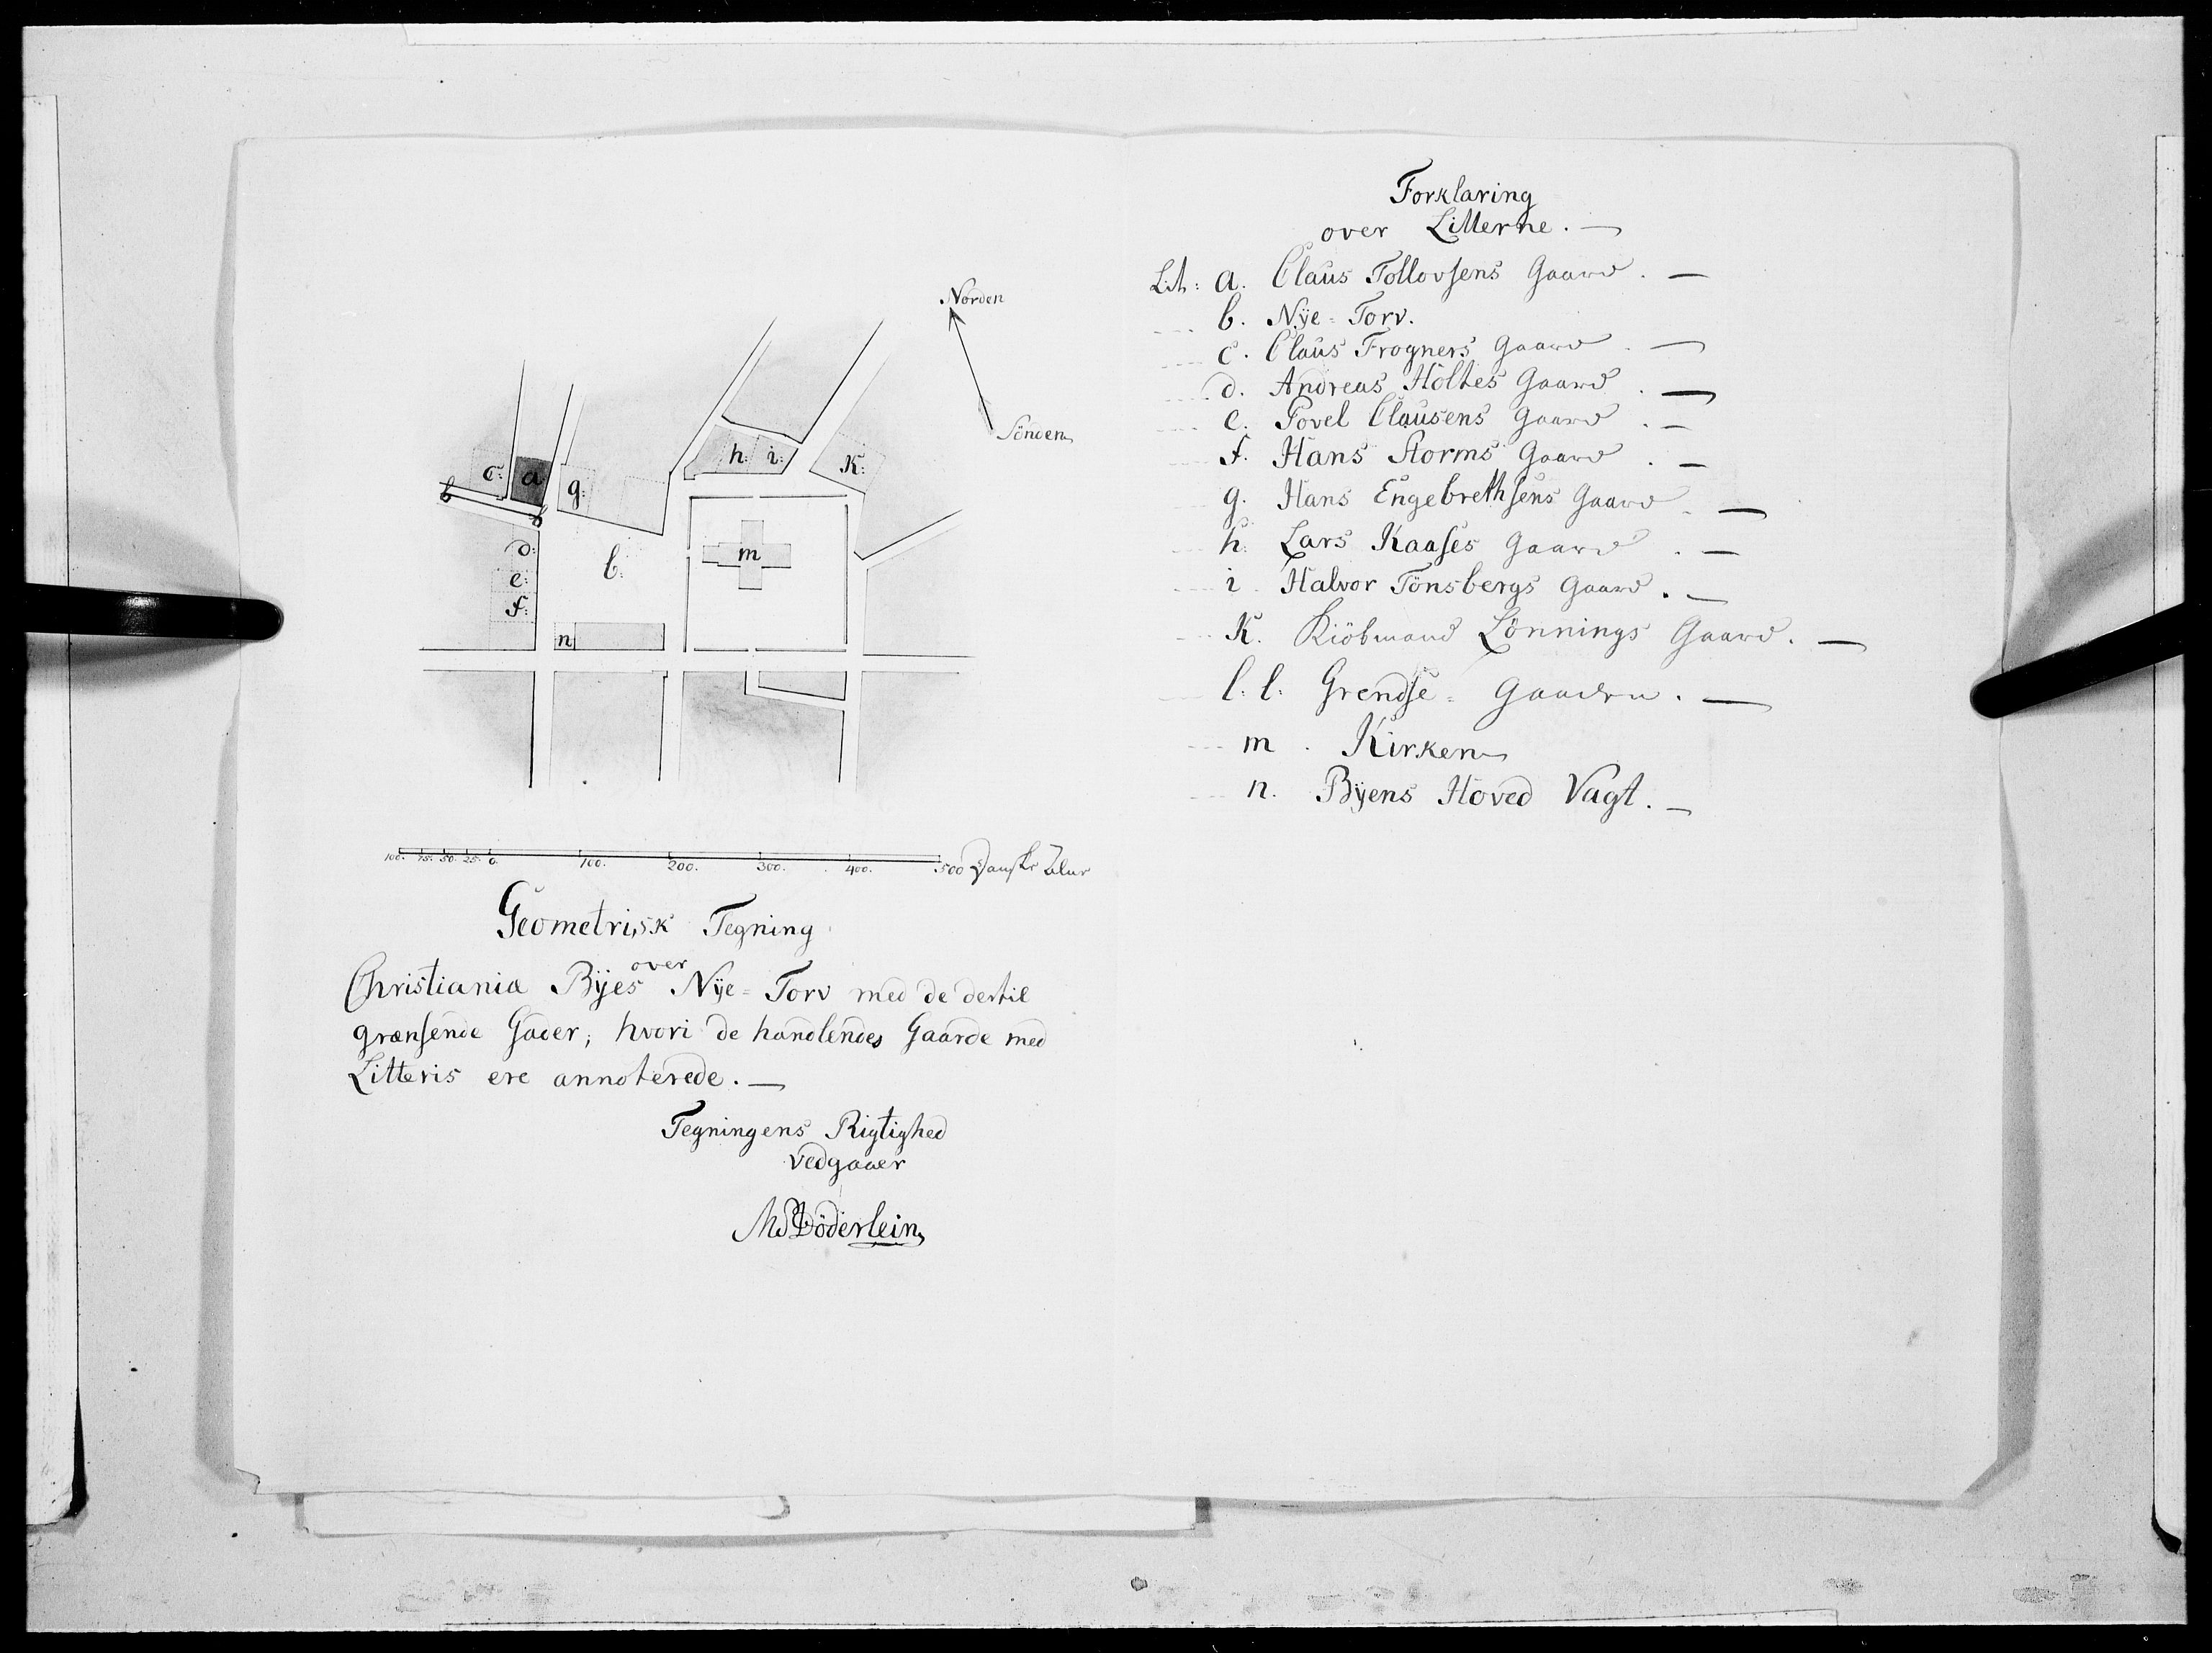 Norden
Sönden
c: a g:
h: i: K:
l
l
d:
e:
f:
b:
m
n
100. 75. 50. 25. 0. 100. 200. 300. 400. 500 Danske Alne
Geometrisk Tegning
over
Christiania Byes Nÿe=Torv med de dertil
grænsende Gader; hvori de handlendes Gaarde med
Litteris ere annoterede. —
Tegningens Rigtighed
vedgaaer
Döderlein
Forklaring
over Litterne. —
Lit: a. Claus Tollovsens Gaard. —
b. Nÿe=Torv.
c. Claus Frogners Gaard. —
d. Andreas Holtes Gaard. —
e. Povel Clausens Gaard. —
f. Hans Storms Gaard. —
g. Hans Engebrethsens Gaard. —
h. Lars Kaases Gaard. —
i. Halvor Tönsbergs Gaard. —
K. Kiöbmand Lönnings Gaard. —
l. l. Grendse=Gaden. —
m. Kirken
n. Bÿens Hoved Vagt. —